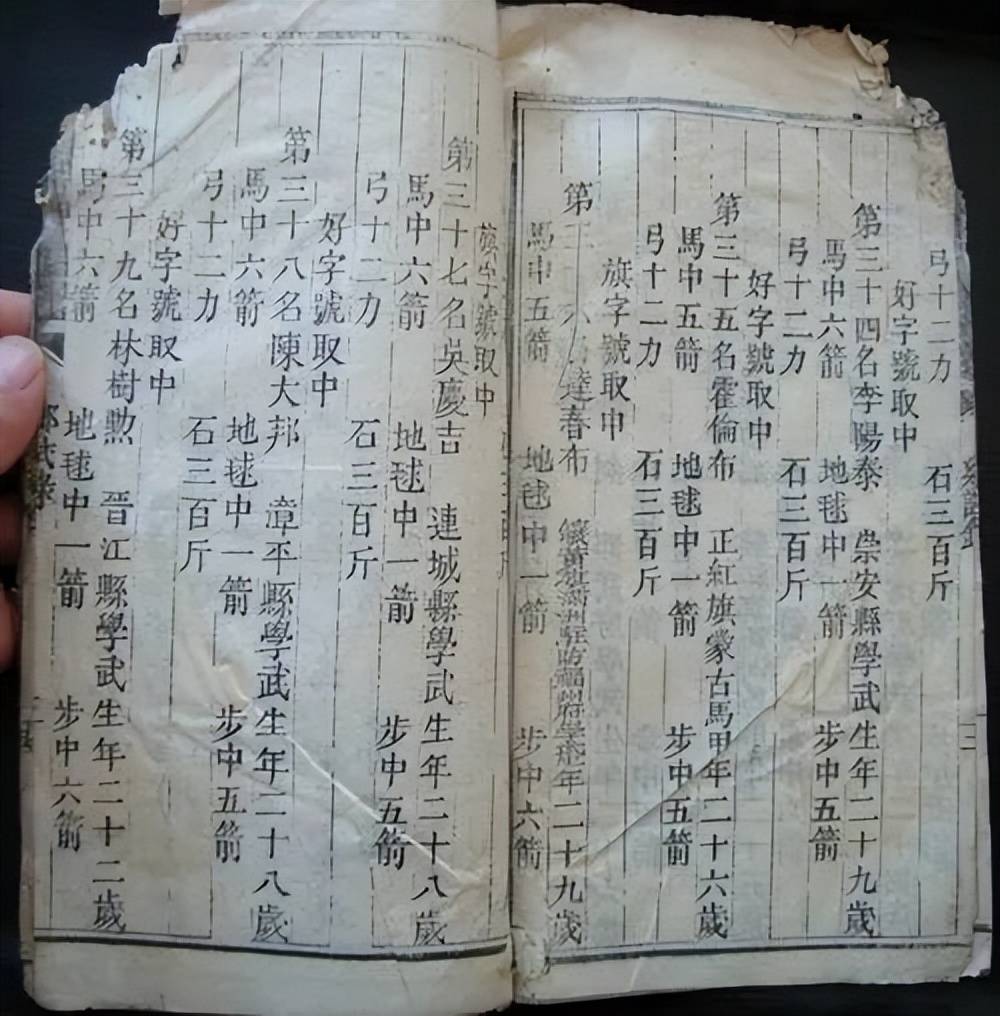 弓十二力 石三百斤
好字號取中
第三十四名李陽泰 崇安縣學武生年二十九歲
馬中六箭 地毬中一箭 步中五箭
弓十二力 石三百斤
好字號取中
第三十五名霍倫布 正紅旗蒙古馬甲年二十六歲
馬中五箭 地毬中一箭 步中五箭
弓十二力 石三百斤
旗字號取中
第三十六名達春布 鑲黃旗滿洲駐防福州府學武生年二十九歲
馬中五箭 地毬中一箭 步中六箭
旗字號取中
第三十七名吳慶吉 連城縣學武生年二十八歲
馬中六箭 地毬中一箭 步中五箭
弓十二力 石三百斤
好字號取中
第三十八名陳大邦 漳平縣學武生年二十八歲
馬中六箭 地毬中一箭 步中五箭
弓十二力 石三百斤
好字號取中
第三十九名林樹勲 晉江縣學武生年二十二歲
馬中六箭 地毬中一箭 步中六箭